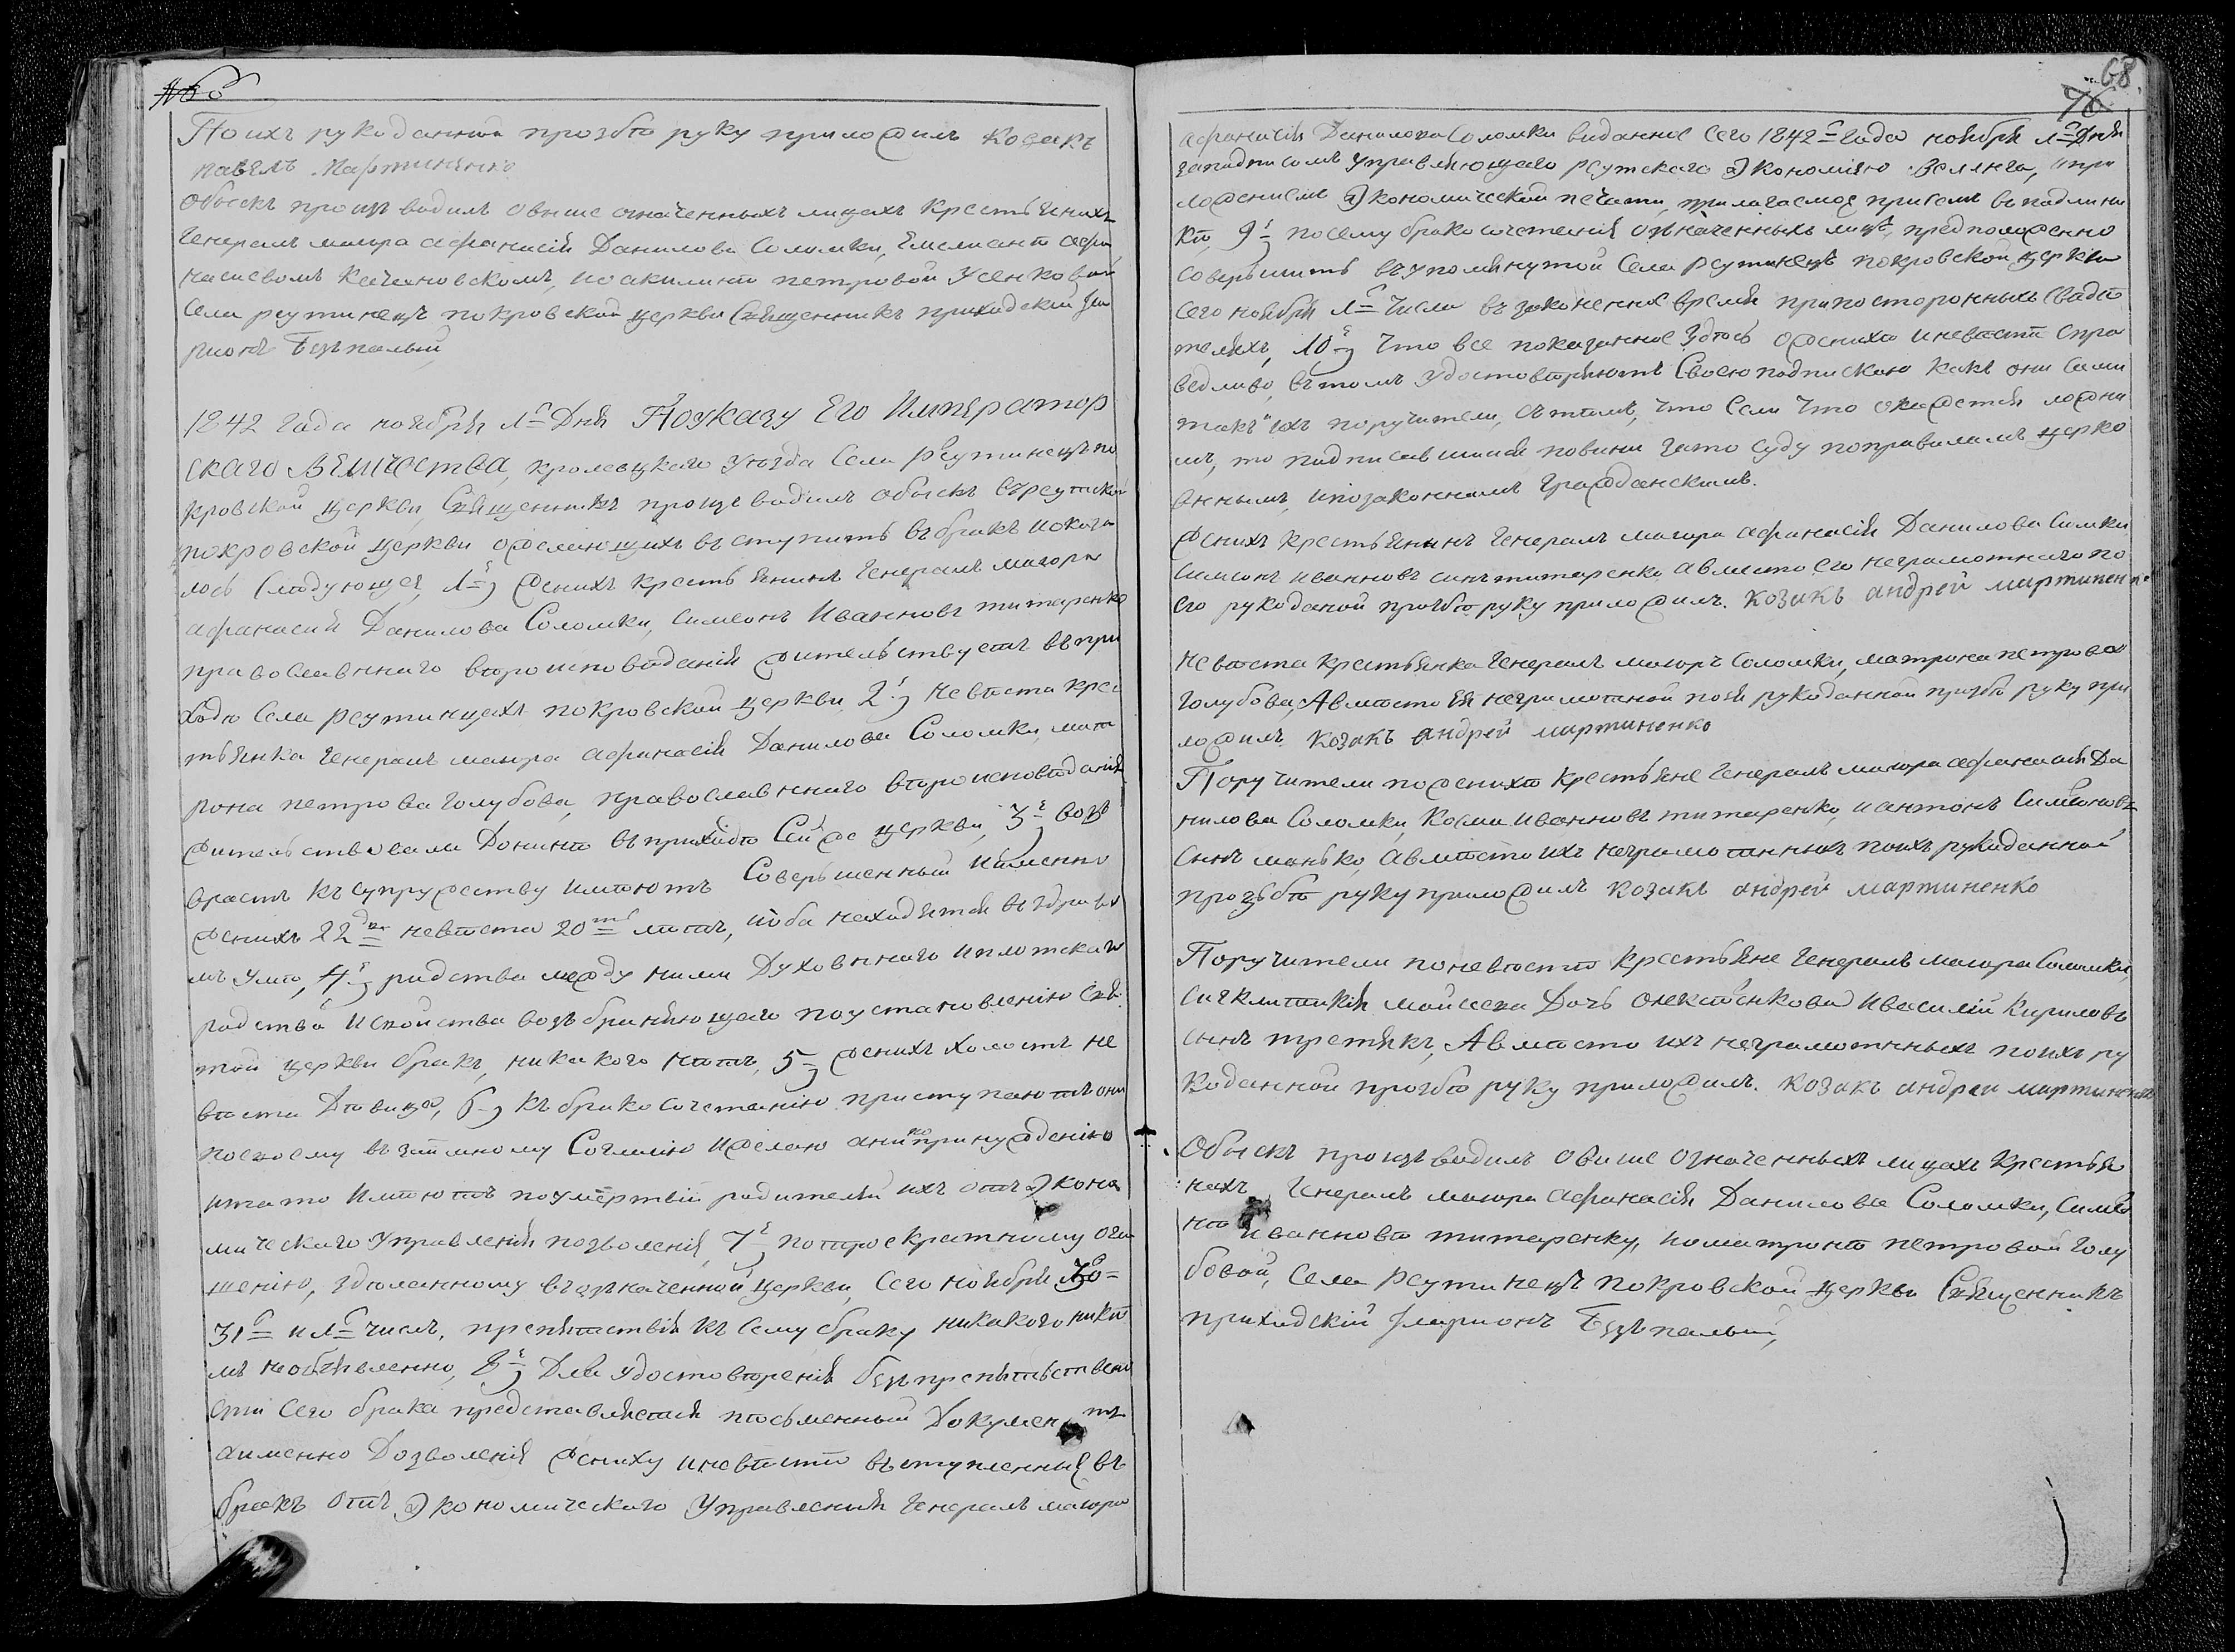 № 6
По ихъ рукоданной прозбѣ руку приложилъ козакъ
павелъ Мартиненко
Обыскъ произъводилъ овыше означенныхъ лицахъ крестьянихъ
Генералъ маиора афанасія Данилова Соломки, Емелианѣ афа
насиевомъ Качановскомъ, и оакилинѣ петровой Усенковой
Села реутинецъ покровской церкви Священникъ приходскій Ила
рионъ Безъпалый,
1842 года ноября 1го Дня По указу Его Император
скаго Величества, кролевцкаго уѣзда Села Реутинецъ по
кровской церкви, Священникъ произъводилъ обыскъ въ реутской
покровской церкви ожелающихъ въступить въ бракъ и оказа
лось Слѣдующее, 1е, женихъ крестьянинъ Генералъ маиора
афанасий Данилова Соломки, Симеонъ Ивановъ титаренко
православнного вѣроисповѣданія жительствуетъ въ при
ходѣ Села реутинцахъ покровской церкви, 2е, Невѣста крес
тьянка Генералъ маиора афанасія Данилова Соломки, мат
рона петрова голубова, православнного вѣроисповѣданія
жительствовали Донынѣ въ приходѣ Сей же церкви, 3е, возъ
врастъ къ супружеству имѣютъ Совершенный и именно
женихъ 22 двa невѣста 20ть лѣтъ, и оба находятся въ здраво
мъ умѣ, 4е, родства между ними Духовнного и плотскаго
родства и свойства возъбраняющаго по установленію Свя
той церкви бракъ, никакого нѣтъ, 5е, женихъ холостъ не
вѣста Дѣвица, 6е, къ бракосочетанію приступаютъ они
посвоему възаимному Согласию и желаю ани по принужденію
и на то имѣютъ поумертвіи родителей ихъ отъ эконо
мическаго Управленія позволеніе, 7е, по троекратному огла
шенію, здѣланному въ означенной церкви, Сего ноября 30=
31го и 1го числъ, препятствія къ Сему браку никакого никѣ
мъ необявленно, 8е, Для удостовѣренія безъпрепятъственн
ости Сего брака представляется письменный Документъ
аименно Дозволенія жениху и невѣстѣ въступленія въ
бракъ отъ экономическаго Управленія Генералъ маиора
68
76
афанасія Данилова Соломки виданное Сего 1842го Года ноября 1го Дня
заподписомъ управляющаго реутскаго экономіею Веленга, ипри
ложениемъ экономической печати, прилагаемое присемъ въ подлини
кѣ, 9е посему бракосочетанія озъначенныхъ лицъ, предположенно
совершить въ упомянутой Села реутинецъ покровской церкви
Сего ноября 1го Числа въ законенное время припосторонныхъ Свидѣ
теляхъ, 10е, Что все показанное здѣсь ожениха и невѣстѣ спра
ведливо, въ томъ удостовѣряютъ Своею подпискою какъ они Сами
такъ ихъ поручители, съ тѣмъ, что Если что окажется ложни
мъ, то подписавшиися повини зато Суду по правиламъ церко
внымъ, и позаконнамъ Гражданскимъ.
Женихъ Крестьянинъ Генералъ маиора афанасія Данилова Соломки
Симеонъ ивановъ синъ титаренко, а вместо его неграмотнаго по
его рукоданой прозбѣ руку приложилъ. козакъ андрей мартиненко
Невѣста крестьянка Генералъ маиоръ Соломки, матрона петрова
Голубова, А вмѣсто Ея неграмотной по ей рукоданной прозбѣ руку при
ложилъ. козакъ андрей мартиненко
Поручители по женихѣ крестьяне Генералъ маиора афанасия Да
нилова Соломки, Косма ивановъ титаренко, и антонъ Симеоновъ
Синъ манько, А вмѣсто ихъ неграмотнныхъ по ихъ рукоданной
прозьбѣ руку приложилъ козакъ андрей мартиненко
Поручители по невѣстѣ крестьяне Генералъ маиора Соломки,
Сигклитикія моисеева Дочь олексѣенкова и василій Кириловъ
Синъ третякъ, А вмѣсто ихъ неграмотнныхъ по ихъ ру
коданной прозбѣ руку приложилъ. козакъ андреи мартиненко
Обыскъ произъводилъ овише означенныхъ лицахъ крестья
нахъ Генералъ маиора Афанасія Данилова Соломки, Симео
нѣ ивановѣ титаренку, и оматронѣ петровой Голу
бовой, Села Реутинецъ покровской церкви Священникъ
приходскій Иларионъ Безъпалый,